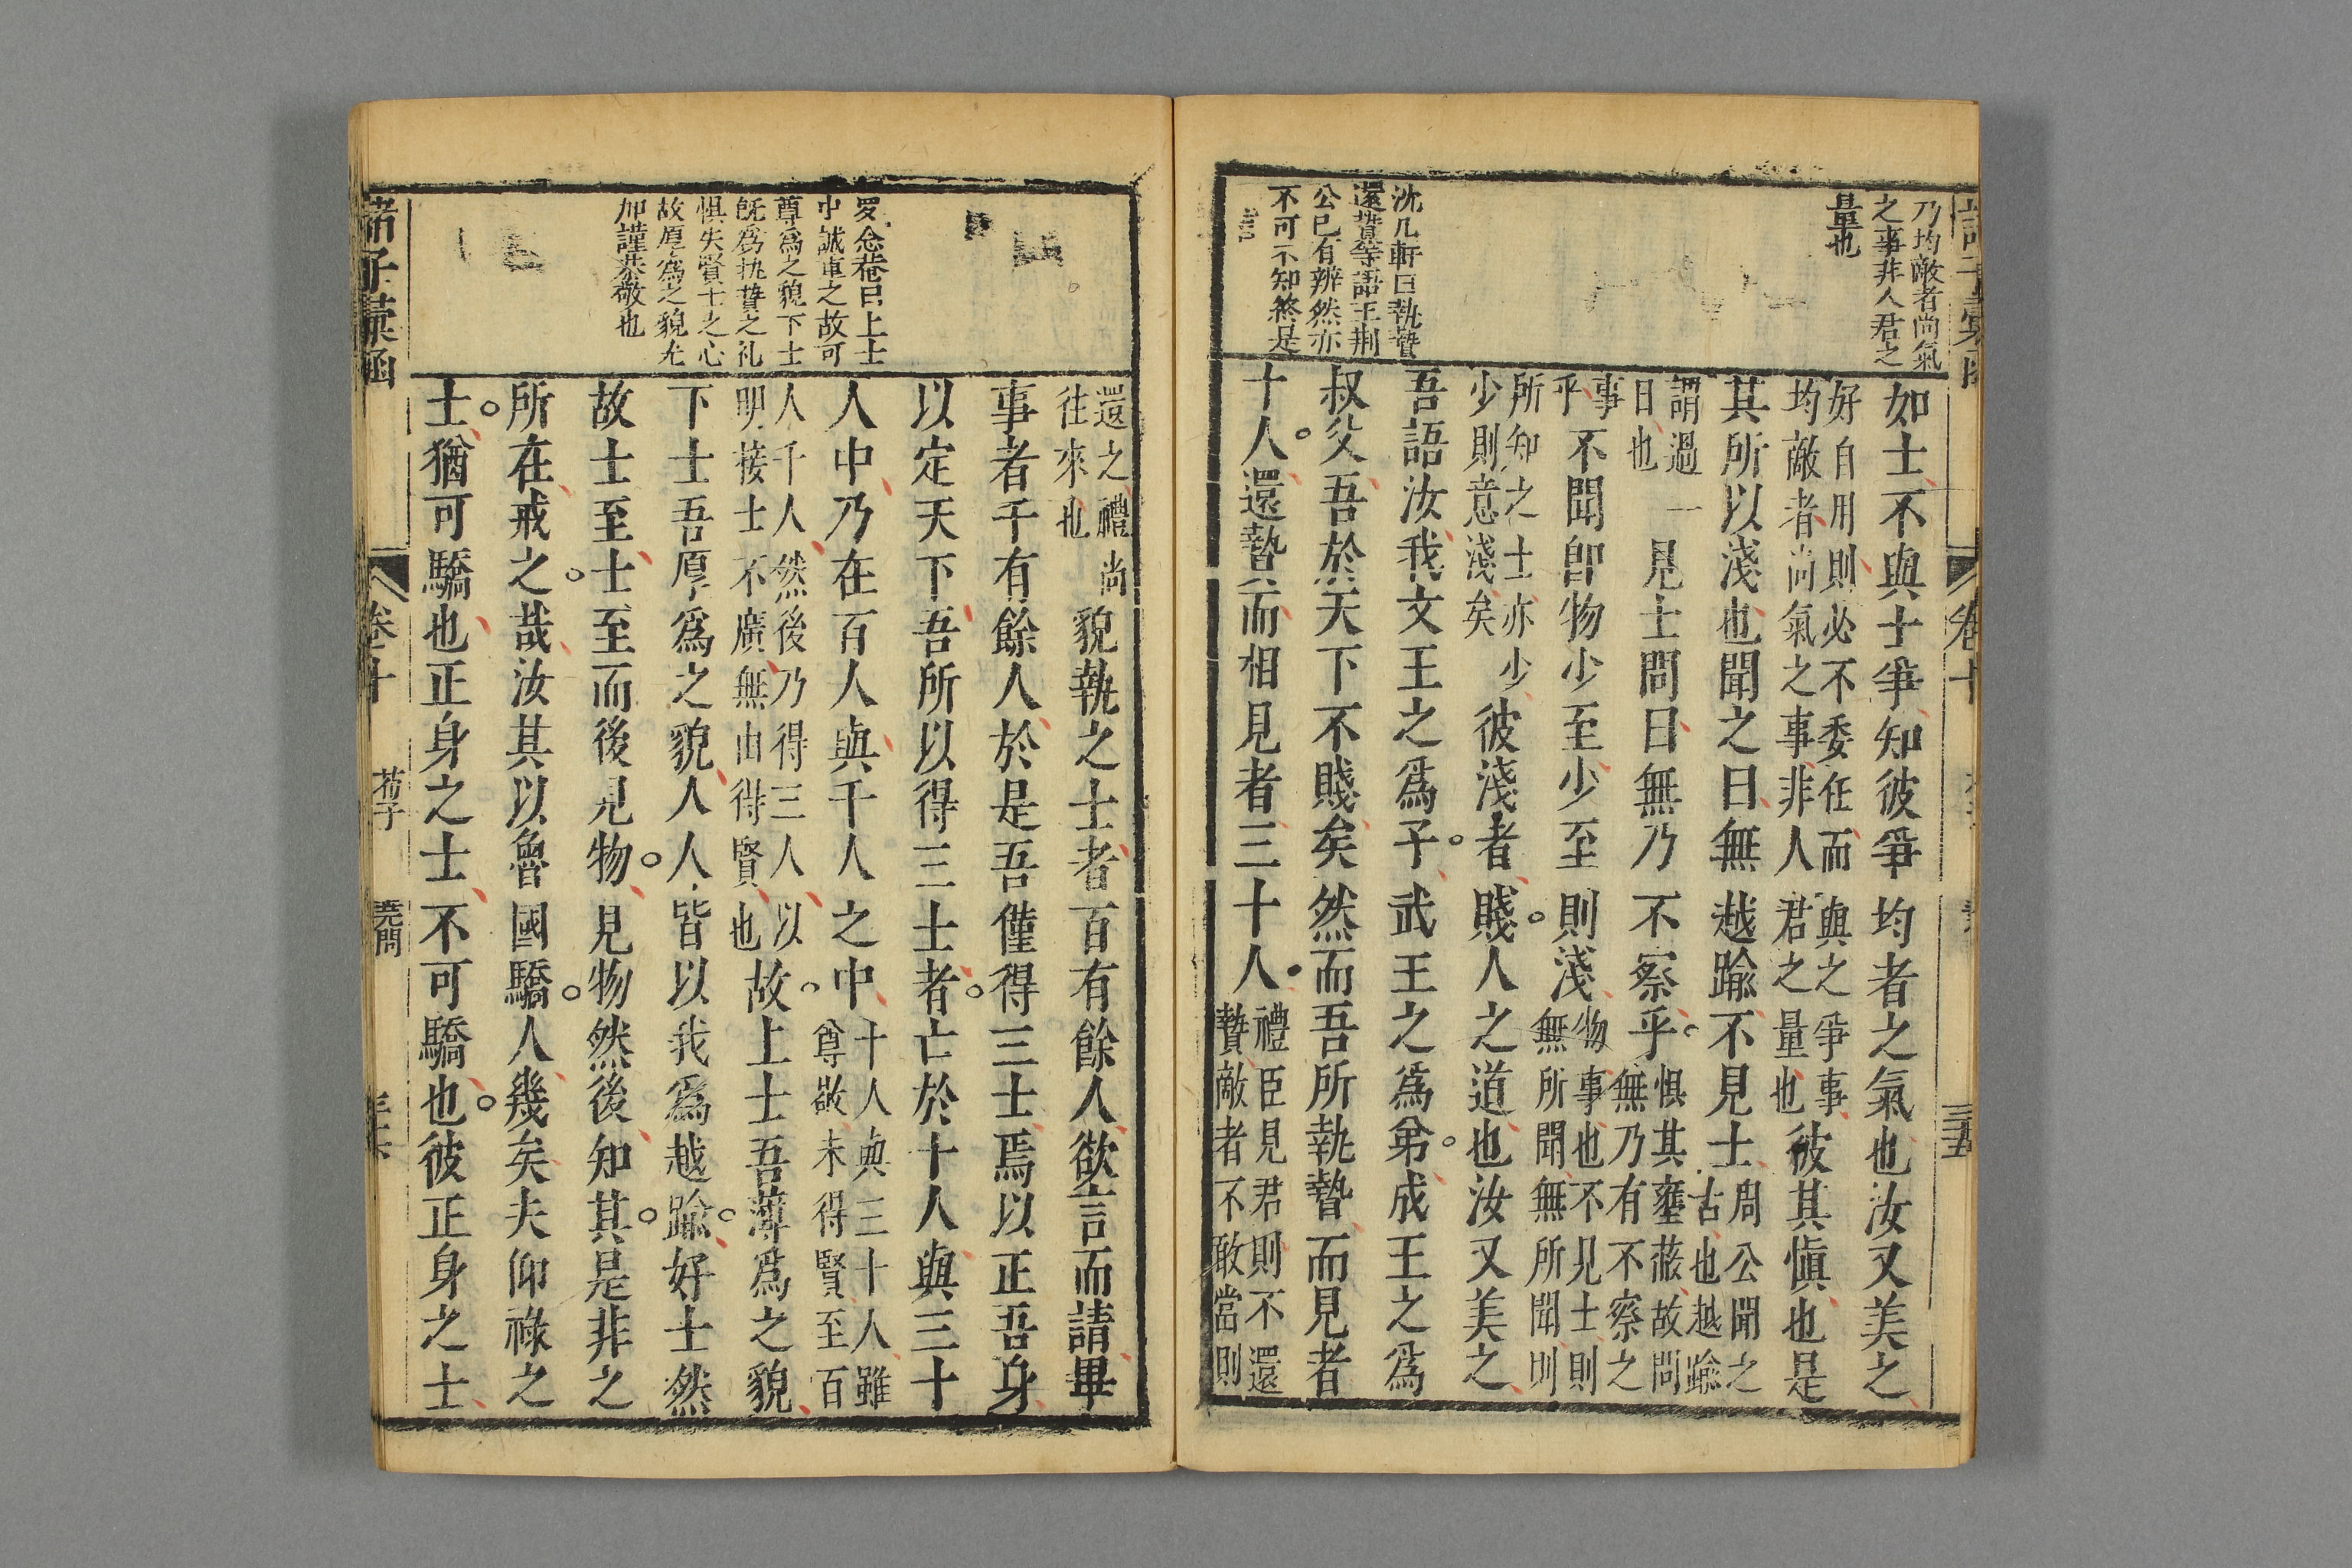 乃均敵者尚氣
之事非人君之
量也
沈几軒曰執贄
還贄等語王荆
公已有辨然亦
不可不知煞是
言
卷十
三五
如士不與士爭知彼爭均者之氣也汝又美之
好自用則必不委任而與之爭事
均敵者尚氣之事非人君之量也彼其愼也是
其所以淺也聞之曰無越踰不見士周公聞之
古也越踰
謂過
日也一見士問曰無乃不察乎懼其壅蔽故問
無乃有不察之
事
乎不聞卽物少至少至則淺物事也不見士則
無所聞無所聞則
所知之士亦少
少則意淺矣彼淺者賤人之道也汝又美之
吾語汝我文王之爲子武王之爲弟成王之爲
叔父吾於天下不賤矣然而吾所執贄而見者
十人還贄而相見者三十人禮臣見君則不還
贄敵者不敢當則
曰上士
中誠重之故可
尊爲之貌下士
旣爲执贄之礼
惧失賢士之心
故厚爲之貌尤
加謹恭敬也
還之禮尚
往來也貌執之士者百有餘人欲言而請畢
事者千有餘人於是吾僅得三士焉以正吾身
以定天下吾所以得三士者亡於十人與三十
人中乃在百人與千人之中十人與三十人雖
尊敬未得賢至百
人千人然後乃得三人以
明接士不廣無由得賢也故上士吾薄爲之貌
下士吾厚爲之貌人人皆以我爲越踰好士然
故士至士至而後見物見物然後知其是非之
所在戒之哉汝其以魯國驕人幾矣夫仰祿之
士猶可驕也正身之士不可驕也彼正身之士
諸子彙函 卷十 荀子 堯問